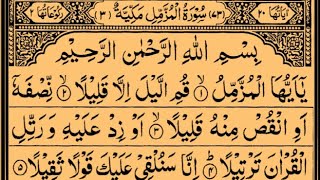 اٰیَاتُهَا ۲۰ (۷۳) سُوْرَةُ الْمُزَّمِّلِ مَكِّیَّةٌ (۳) رُكُوْعَاتُهَا ۲
بِسْمِ اللّٰهِ الرَّحْمٰنِ الرَّحِیْمِ
یٰۤاَیُّهَا الْمُزَّمِّلُ ۱ قُمِ الَّیْلَ اِلَّا قَلِیْلًا ۲ نِّصْفَهٗۤ
اَوِ انْقُصْ مِنْهُ قَلِیْلًا ۳ اَوْ زِدْ عَلَیْهِ وَ رَتِّلِ
الْقُرْاٰنَ تَرْتِیْلًا ۴ اِنَّا سَنُلْقِیْ عَلَیْكَ قَوْلًا ثَقِیْلًا ۵